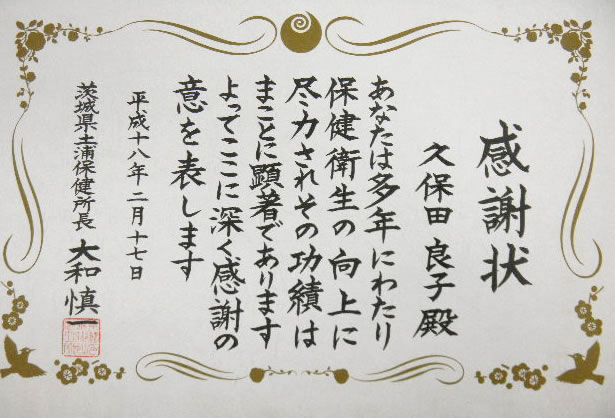 感謝状
久保田良子殿
あなたは多年にわたり
保健衛生の向上に
尽力されその功績は
まことに顕著であります
よってここに深く感謝の
意を表します
平成十八年二月十七日
茨城県土浦保健所長 大和慎一